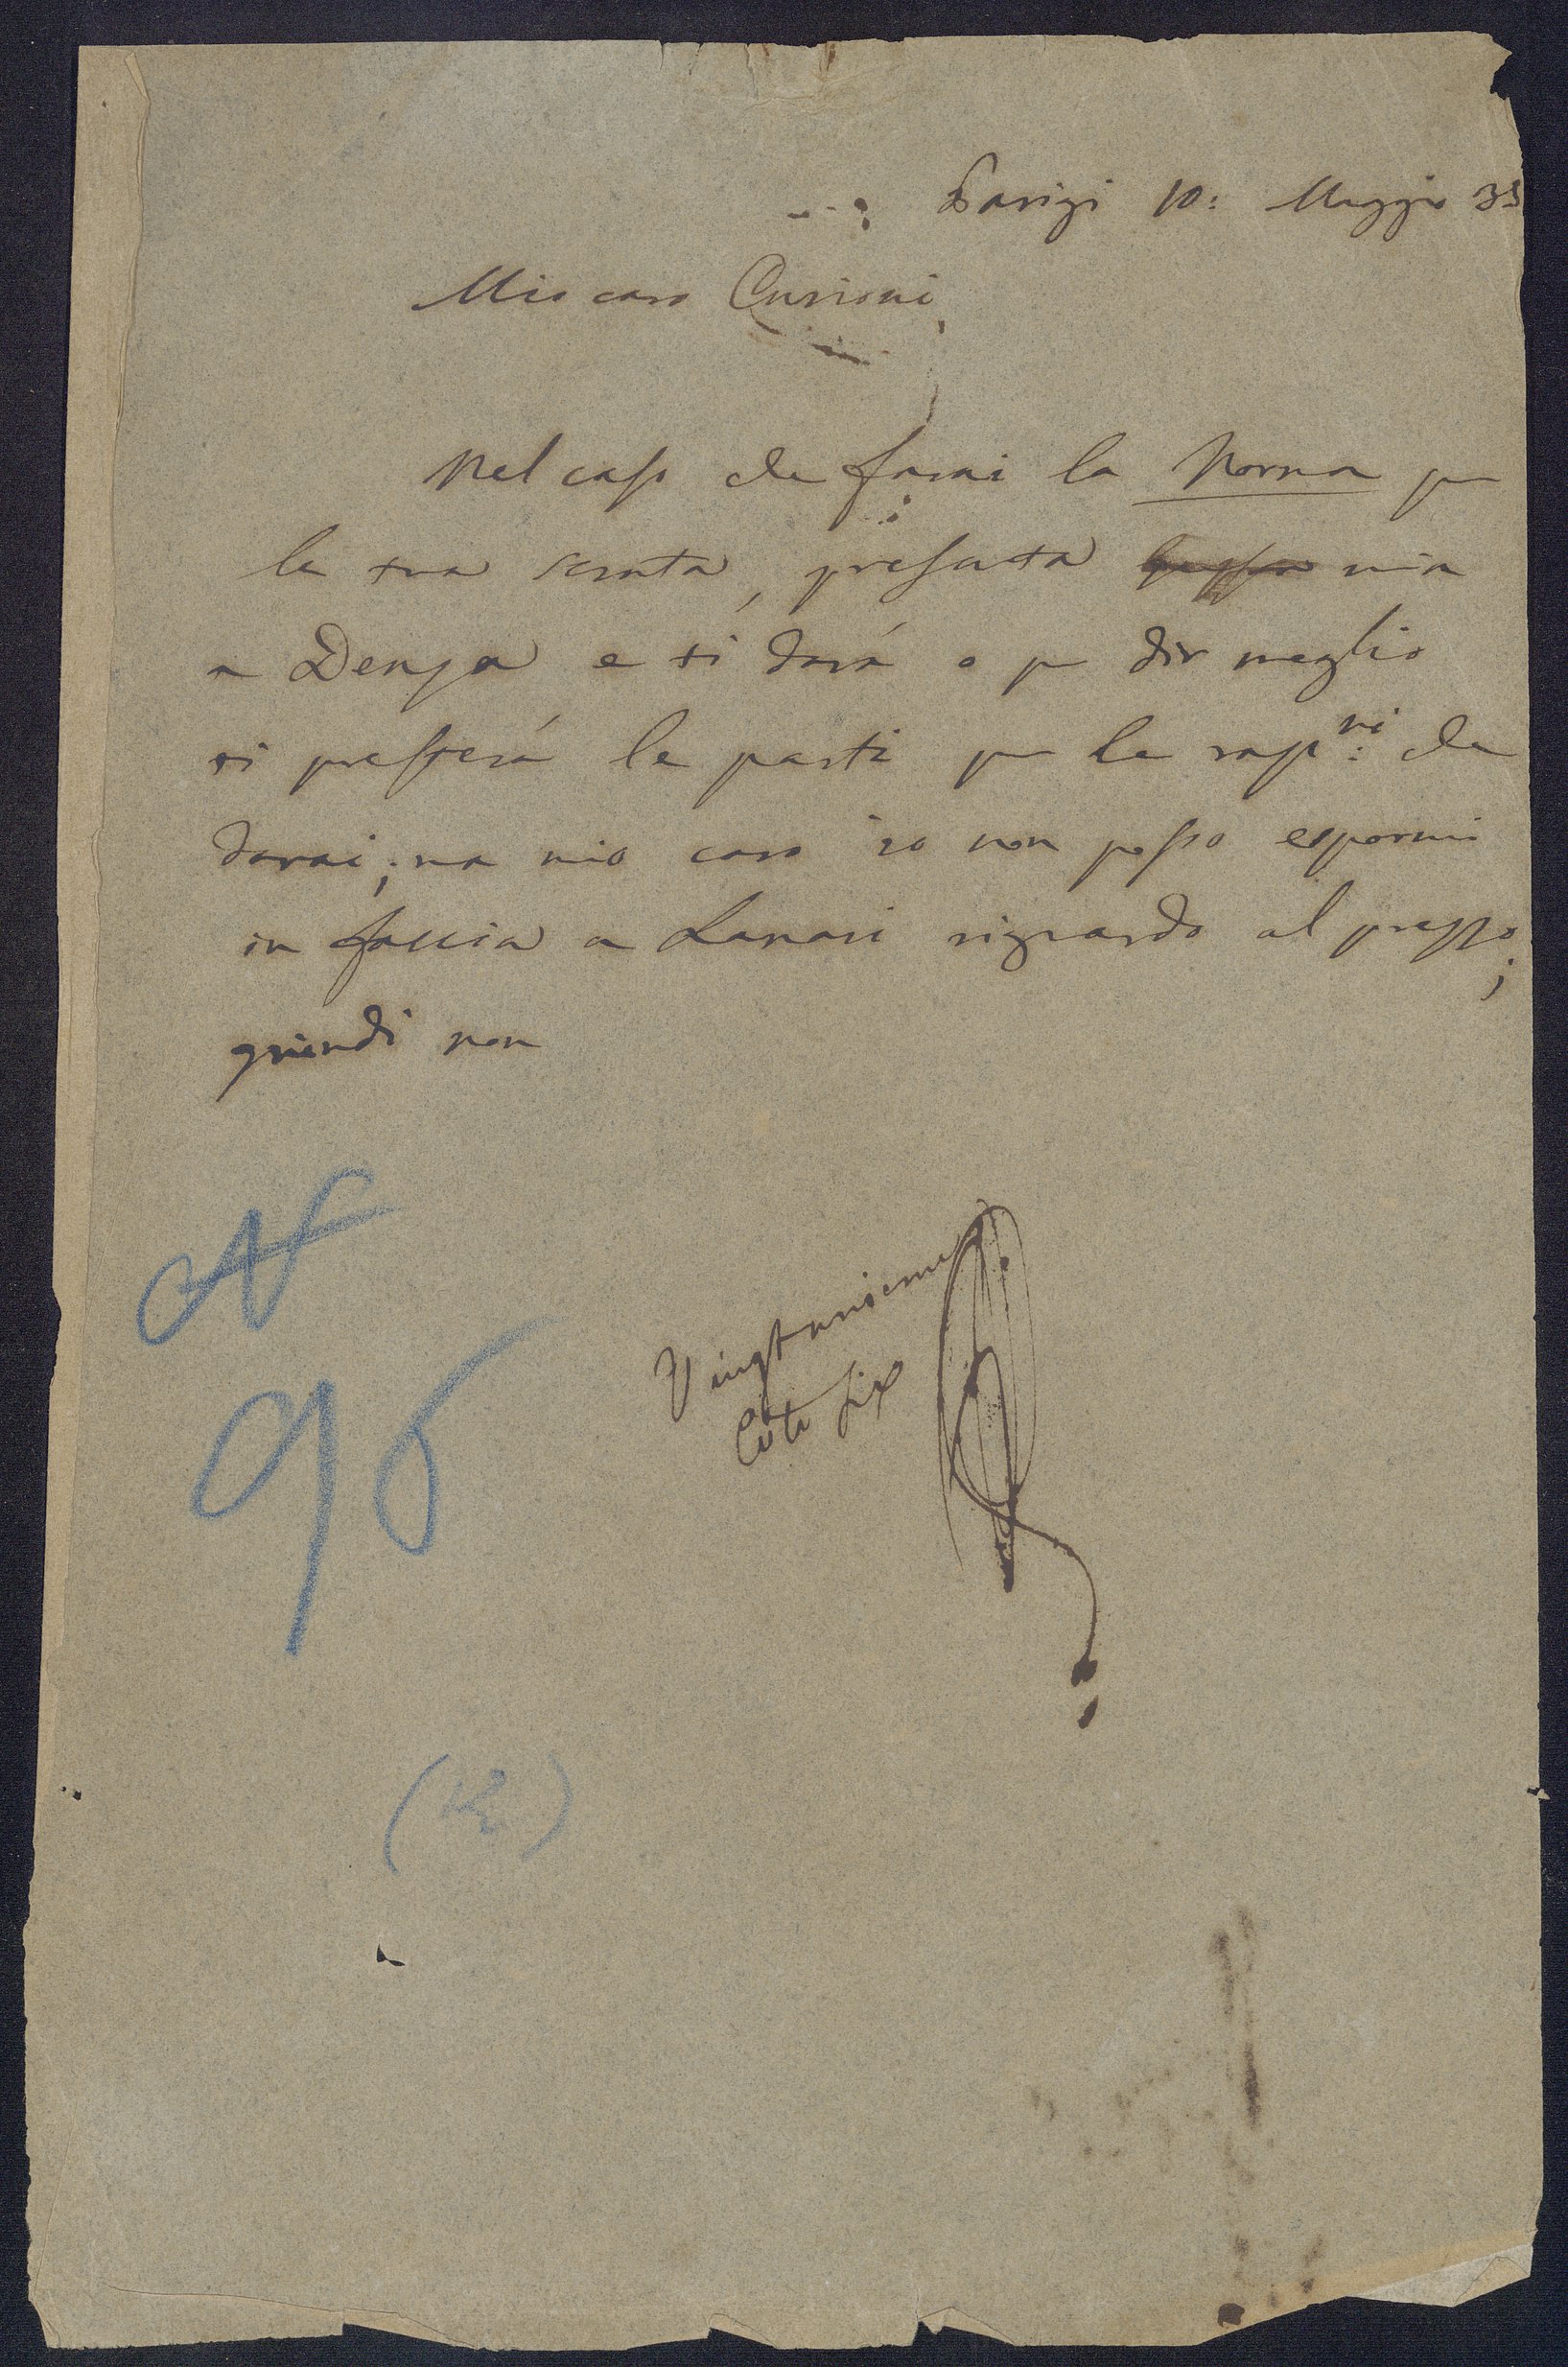 Parigi 10: Maggio 35
Mio caro Curioni
Nel caso che farai la Norma per
la tua serata, presenta mia
a Denza e ti dará o per dir meglio
ti presterá le parti per le rapni: che
darai; ma mio caro io non posso espormi
in faccia a Lanari riguardo al prezzo;
quindi non
Vingtunieme
Cote Six
96